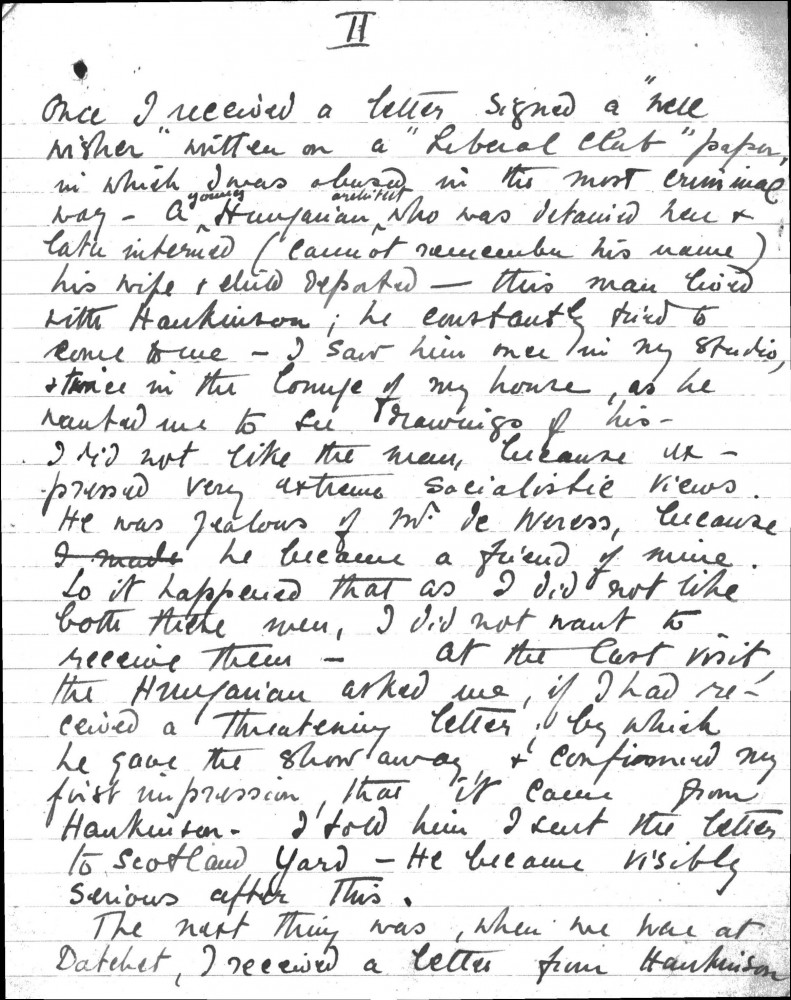 II
Once I received a letter signed a "well
wisher" written on a "Liberal Club" paper,
in which I was abused in the most criminal
way - A young Hungarian architect who was detained here &
later interned (cannot remember his name)
his wife & child deported - this man lived
with Hankinson; he constantly tried to
come to me - I saw him once in my studio,
& twice in the lounge of my house, as he
wanted me to see drawings of his -
I did not like the man, because ex-
pressed very extreme socialistic views.
He was jealous of Mr. de Weress, because
I made he became a friend of mine.
So it happened that as I did not like
both these men, I did not want to
receive them - at the last visit,
the Hungarian asked me, if I had re-
ceived a threatening letter, by which
he gave the show away, & confirmed my
first impression, that it came from
Hankinson - I told him I sent the letter
to Scotland Yard - He became visibly
serious after this.
The next thing was, when we were at
Datchet, I received a letter from Hankinson